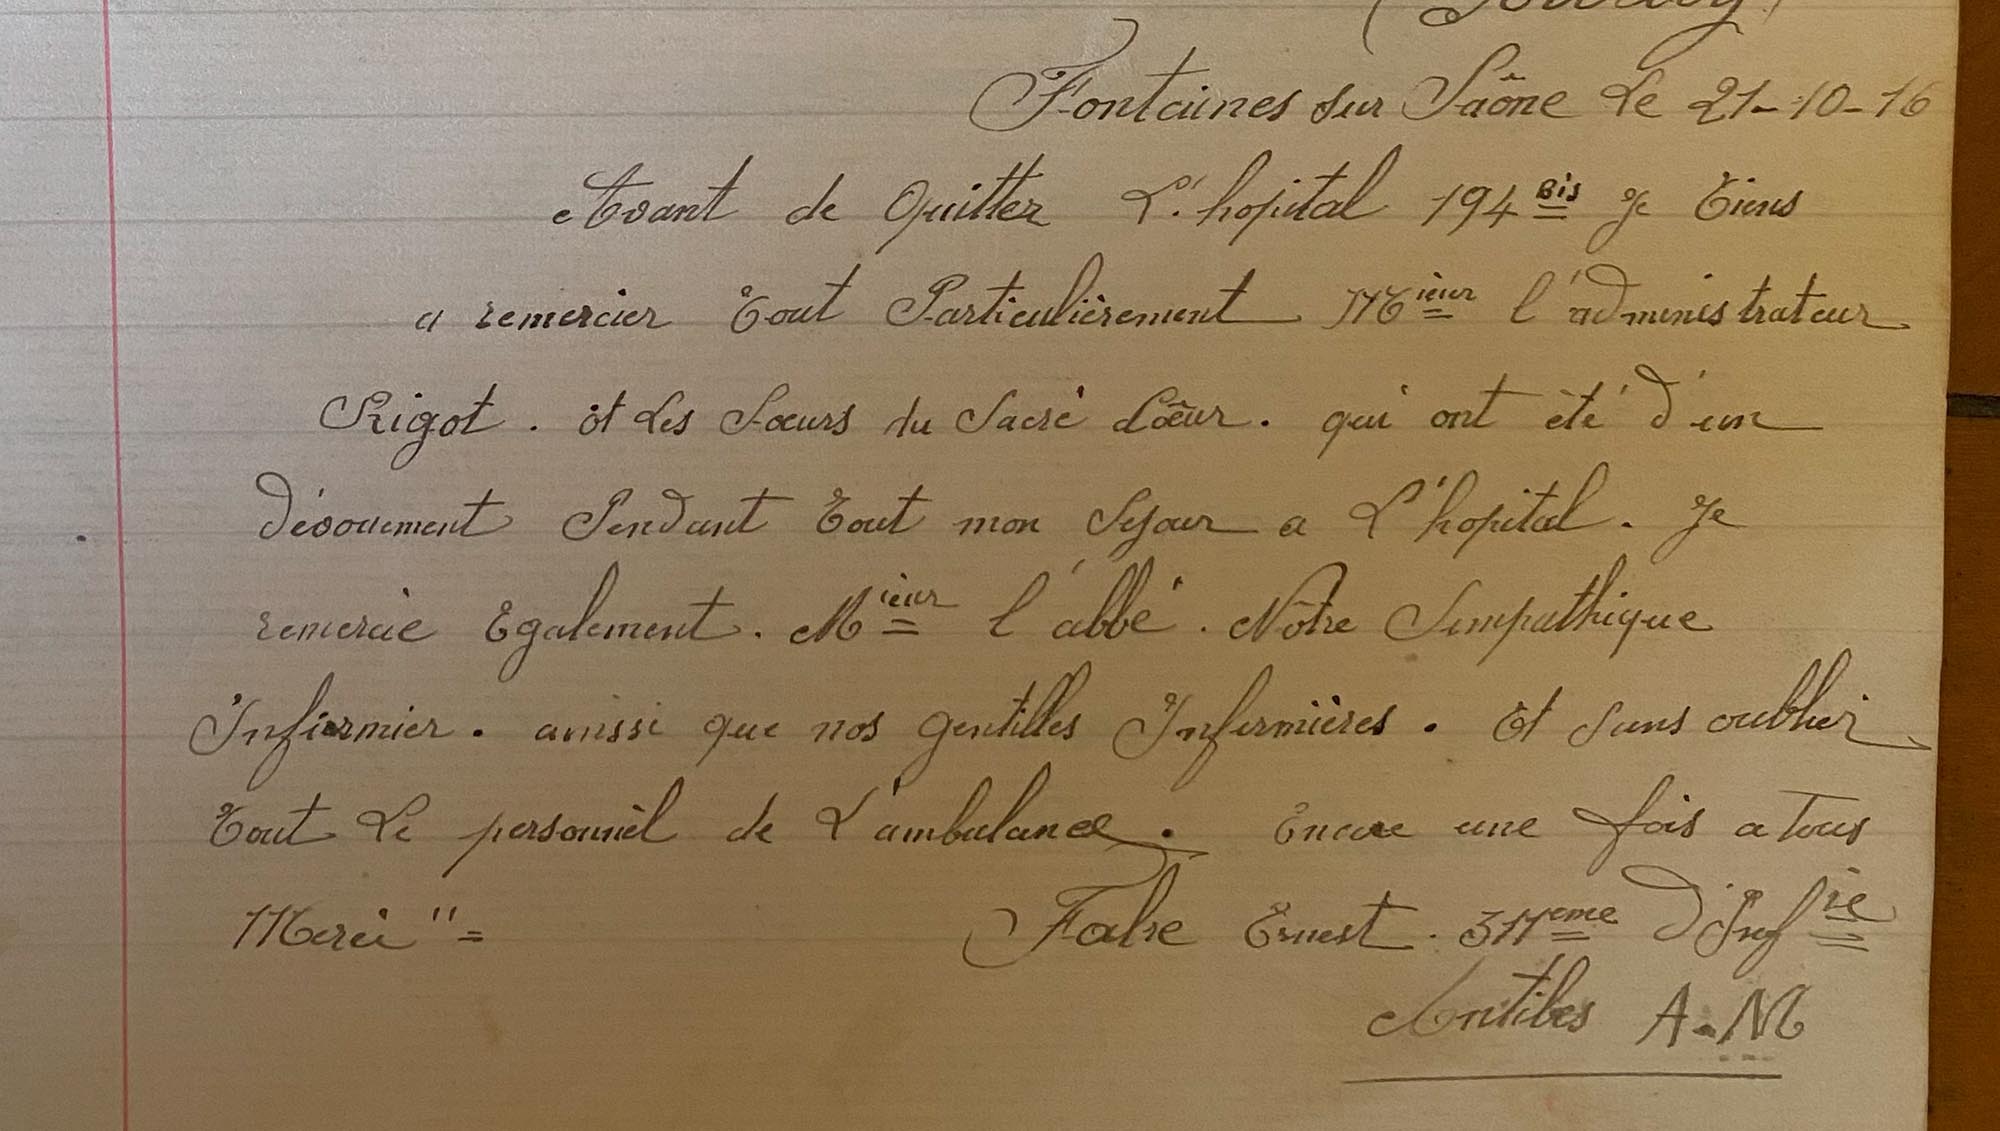 Fontaines sur Saône Le 21-10-16
Avant de Quitter L'hopital 194 Bis Je Tiens
a remercier Tout Particulièrement Mieur l'administrateur
Rigot. et Les Sœurs du Sacré Cœur. qui ont été d'un
dévouement Pendant Tout mon Sejour a L'hopital. Je
remercie Egalement. Mieur l'abbé. Nôtre Simpathique
Infirmier. ainssi que nos gentilles Infermières. Et Sans oublier
Tout Le personnel de L'ambulance. Encore une fois a Tous
Merci "=
Fabre Ernest. 311eme d'Infie
Antibes A.M